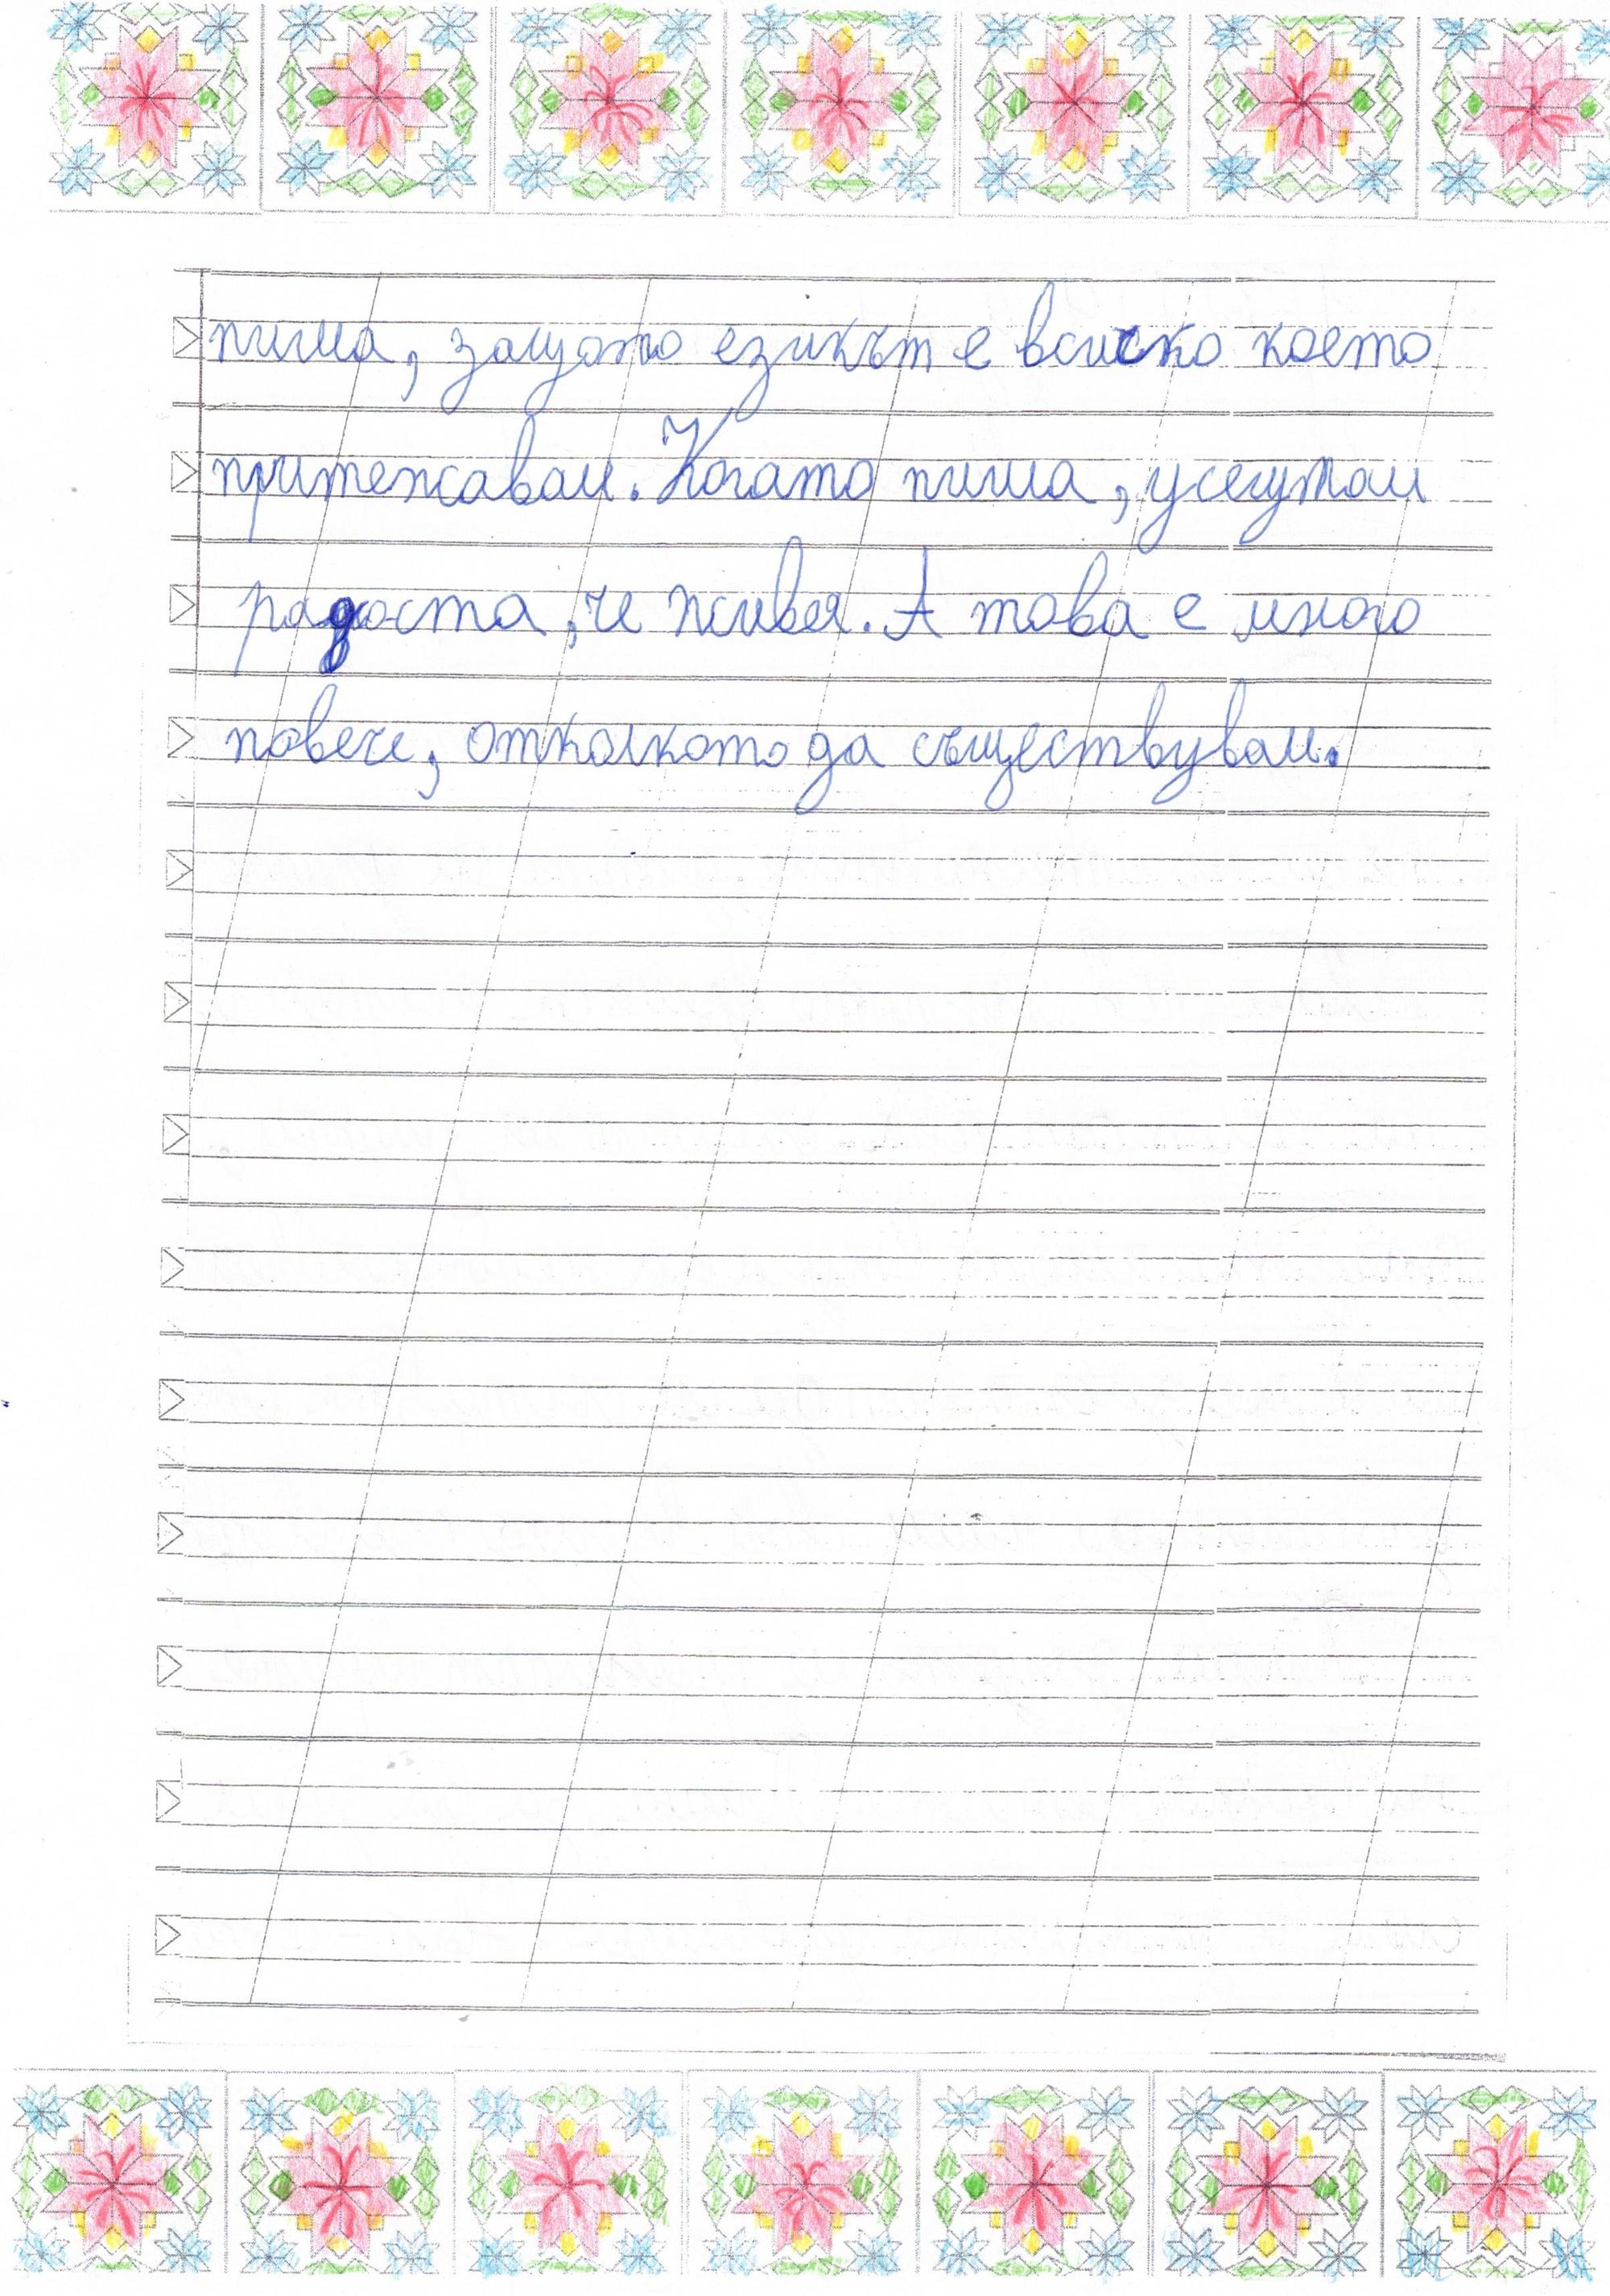 пиша, защото езикът е всиско което
притежавам. Когато пиша, усещтам
радоста, че живея. А това е много
повече, отколкото да съществувам.